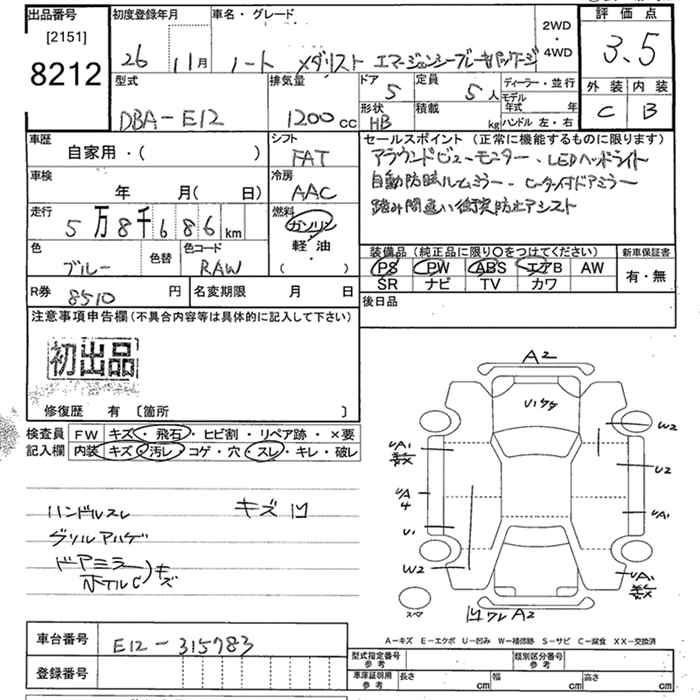 出品番号 初度登録年月 車名・グレード 2WD・4WD 評価点
[2151]
8212 26 11月 ノート メダリスト エマージェンシーブレーキパッケージ 3.5
型式 排気量 ドア 定員 ディーラー・並行 外装 内装
DBA-E12 1200cc 5 5人 モデル年式 年 C B
形状 積載 kg ハンドル 左・右
HB
車歴 シフト セールスポイント(正常に機能するものに限ります)
自家用・( ) FAT アラウンドビューモニター・LEDヘッドライト
車検 冷房 自動防眩ルームミラー・ヒーター付ドアミラー
年 月( 日) AAC 踏み間違い衝突防止アシスト
走行 燃料
5万8千686km ガソリン
軽油
・
( )
色 色替 色コード 装備品(純正品に限り〇をつけてください) 新車保証書
ブルー RAW PS PW ABS エアB AW 有・無
SR ナビ TV カワ
R券 8510円 名変期限 月 日 後日品
注意事項申告欄(不具合内容等は具体的に記入して下さい)
初出品
修復歴 有 〔箇所 〕
検査員 FW キズ・飛石・ヒビ割・リペア跡・×要
記入欄 内装 キズ・汚レ・コゲ・穴・スレ・キレ・破レ
ハンドルスレ キズ凹
グリルアハゲ
ドアミラー
ホイルC)キズ
A2
U1ケケ
W2
UA1
U2
UA
4
UA1
U1
W2
UA1
スペア
凹ワレA2
車台番号 E12-315783
登録番号
A-キズ E-エクボ U-凹み W-補修跡 S-サビ C-腐食 XX-交換済
型式指定番号 参考 類別区分番号 参考
車庫証明用 参考 長さ cm 幅 cm 高さ cm